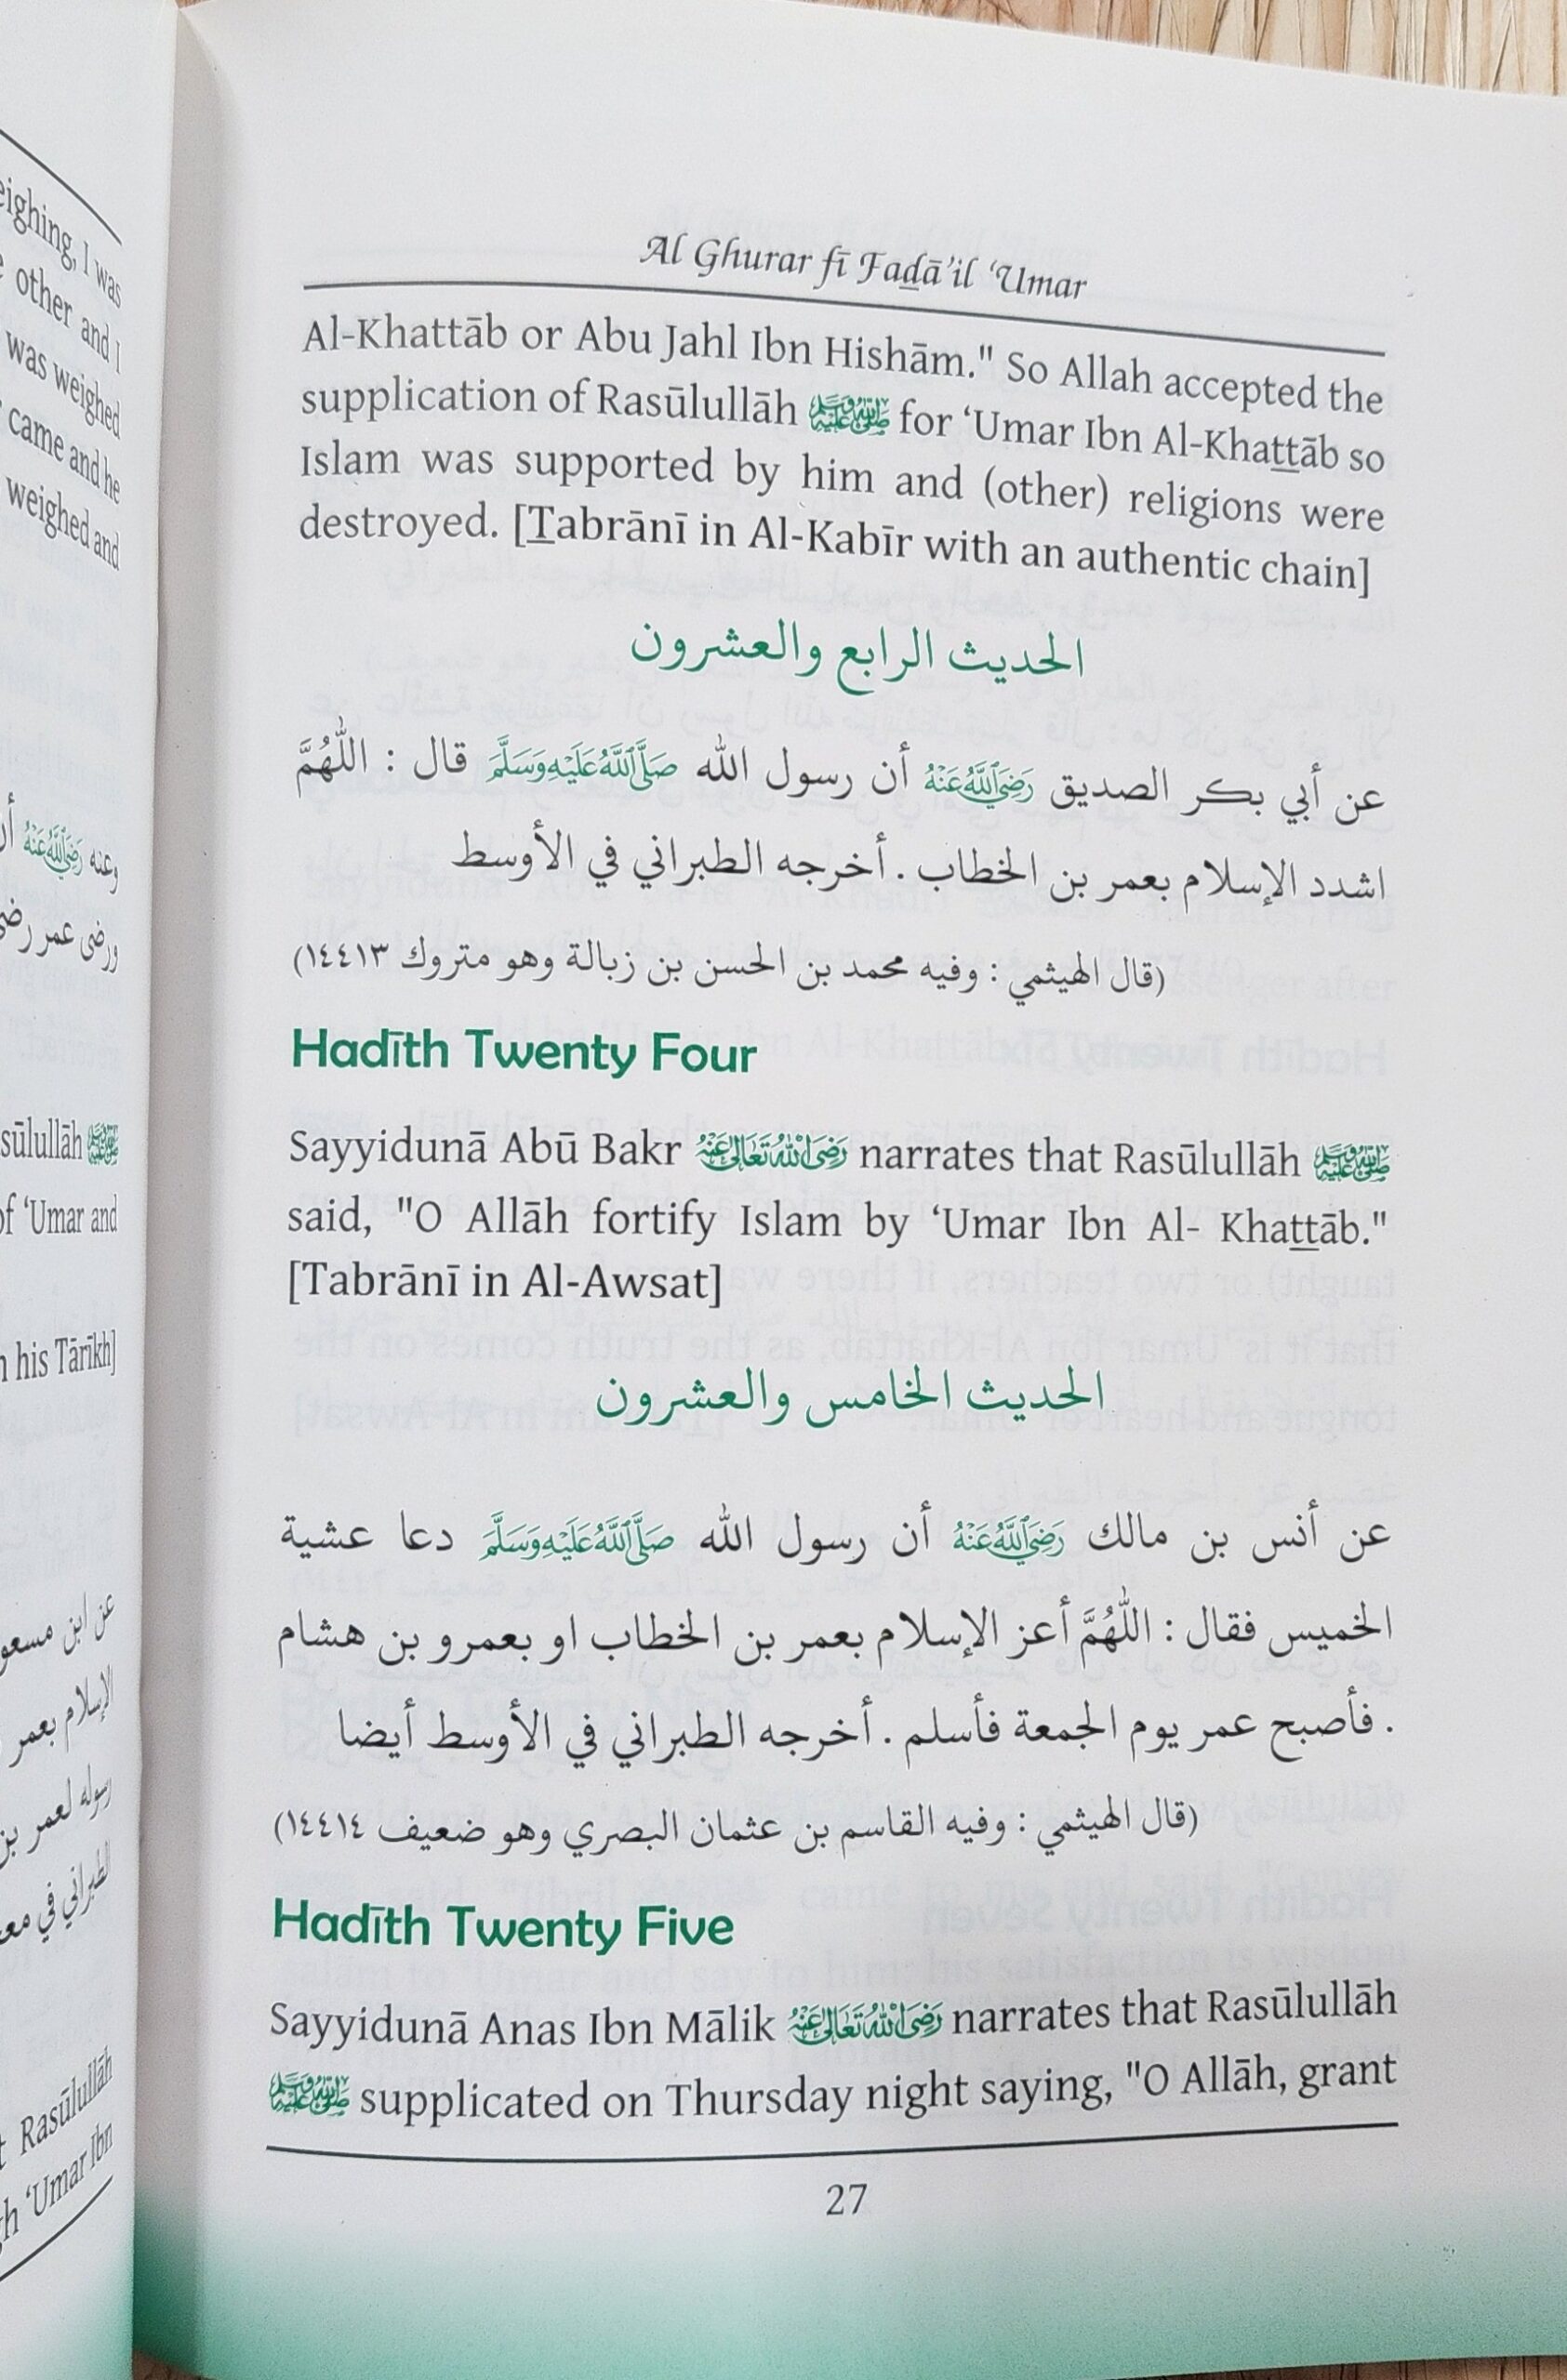 eighing, I was
other and I
was weighed
came and he
weighed and
وعنه رَضِيَ اللَّهُ عَنْهُ
ورضى عمر
sūlullāh ﷺ
of ‘Umar and
his Tārīkh]
عن ابن
الإسلام بعمر
رسوله لعمر بن
الطبراني في
Rasūlullāh
‘Umar Ibn
Al Ghurar fī Faḏā’il ‘Umar
Al-Khattāb or Abu Jahl Ibn Hishām." So Allah accepted the
supplication of Rasūlullāh ﷺ for ‘Umar Ibn Al-Khaṯṯāb so
Islam was supported by him and (other) religions were
destroyed. [Ṯabrānī in Al-Kabīr with an authentic chain]
الحديث الرابع والعشرون
عن أبي بكر الصديق رَضِيَ اللَّهُ عَنْهُ أن رسول الله صَلَّى اللَّهُ عَلَيْهِ وَسَلَّمَ قال : اللّٰهُمَّ
اشدد الإسلام بعمر بن الخطاب . أخرجه الطبراني في الأوسط
(قال الهيثمي : وفيه محمد بن الحسن بن زبالة وهو متروك ١٤٤١٣)
Hadīth Twenty Four
Sayyidunā Abū Bakr رَضِيَ اللهُ تَعَالَىٰ عَنْهُ narrates that Rasūlullāh ﷺ
said, "O Allāh fortify Islam by ‘Umar Ibn Al- Khaṯṯāb."
[Tabrānī in Al-Awsat]
الحديث الخامس والعشرون
عن أنس بن مالك رَضِيَ اللَّهُ عَنْهُ أن رسول الله صَلَّى اللَّهُ عَلَيْهِ وَسَلَّمَ دعا عشية
الخميس فقال : اللّٰهُمَّ أعز الإسلام بعمر بن الخطاب او بعمرو بن هشام
. فأصبح عمر يوم الجمعة فأسلم . أخرجه الطبراني في الأوسط أيضا
(قال الهيثمي : وفيه القاسم بن عثمان البصري وهو ضعيف ١٤٤١٤)
Hadīth Twenty Five
Sayyidunā Anas Ibn Mālik رَضِيَ اللهُ تَعَالَىٰ عَنْهُ narrates that Rasūlullāh
ﷺ supplicated on Thursday night saying, "O Allāh, grant
27